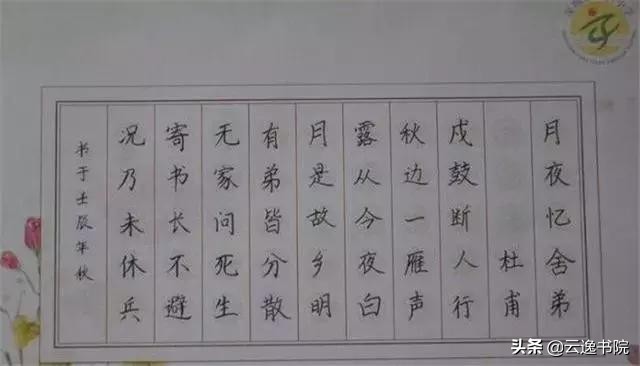 月夜忆舍弟
杜甫
戍鼓断人行
秋边一雁声
露从今夜白
月是故乡明
有弟皆分散
无家问死生
寄书长不避
况乃未休兵
书于壬辰年秋
头条 @云逸书院